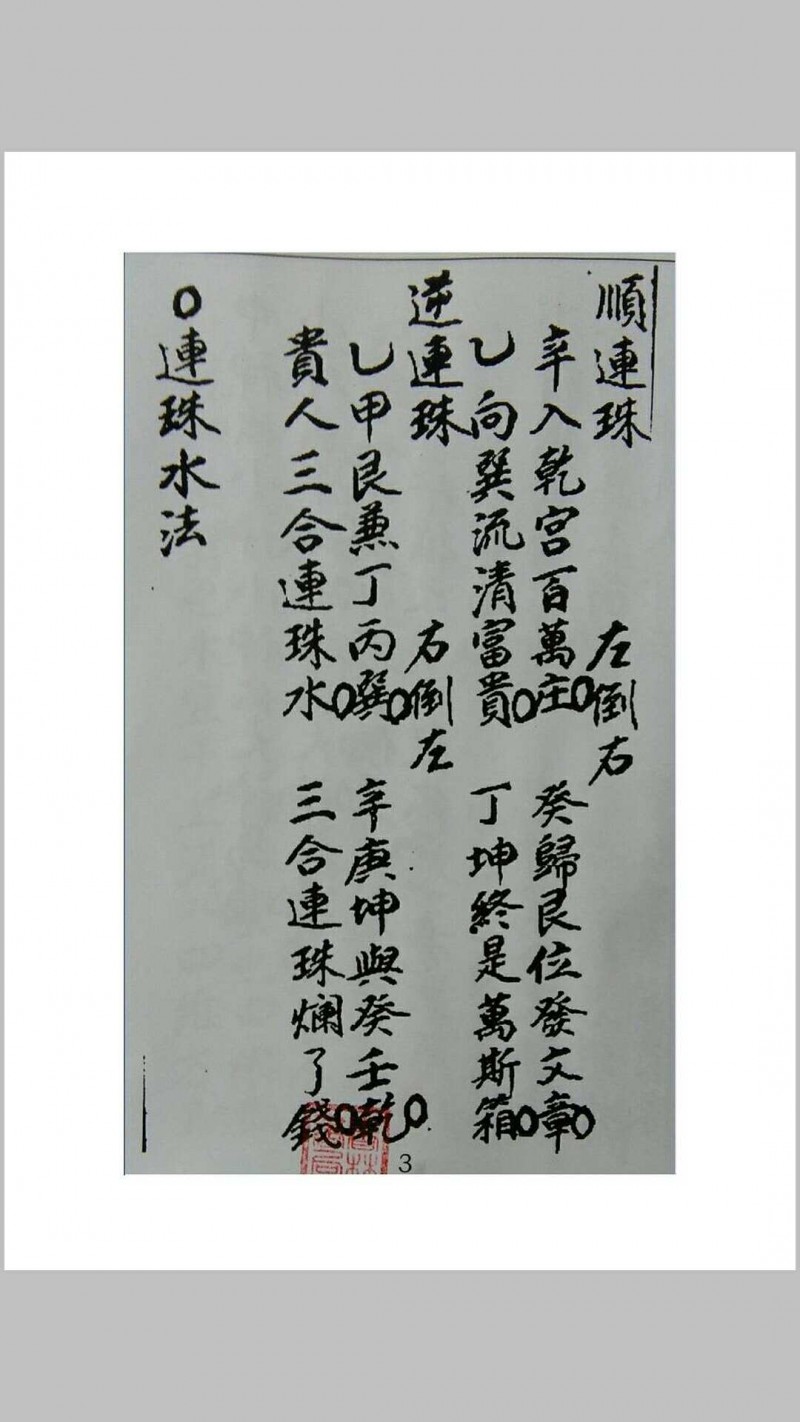 順連珠 左倒右
辛入乾宮百萬庄○癸歸艮位發文章○
乙向巽流清富貴○丁坤終是萬斯箱○
逆連珠 右倒左
乙甲艮兼丁丙巽○辛庚坤與癸壬乾○
貴人三合連珠水○三合連珠爛了錢○
○連珠水法
3